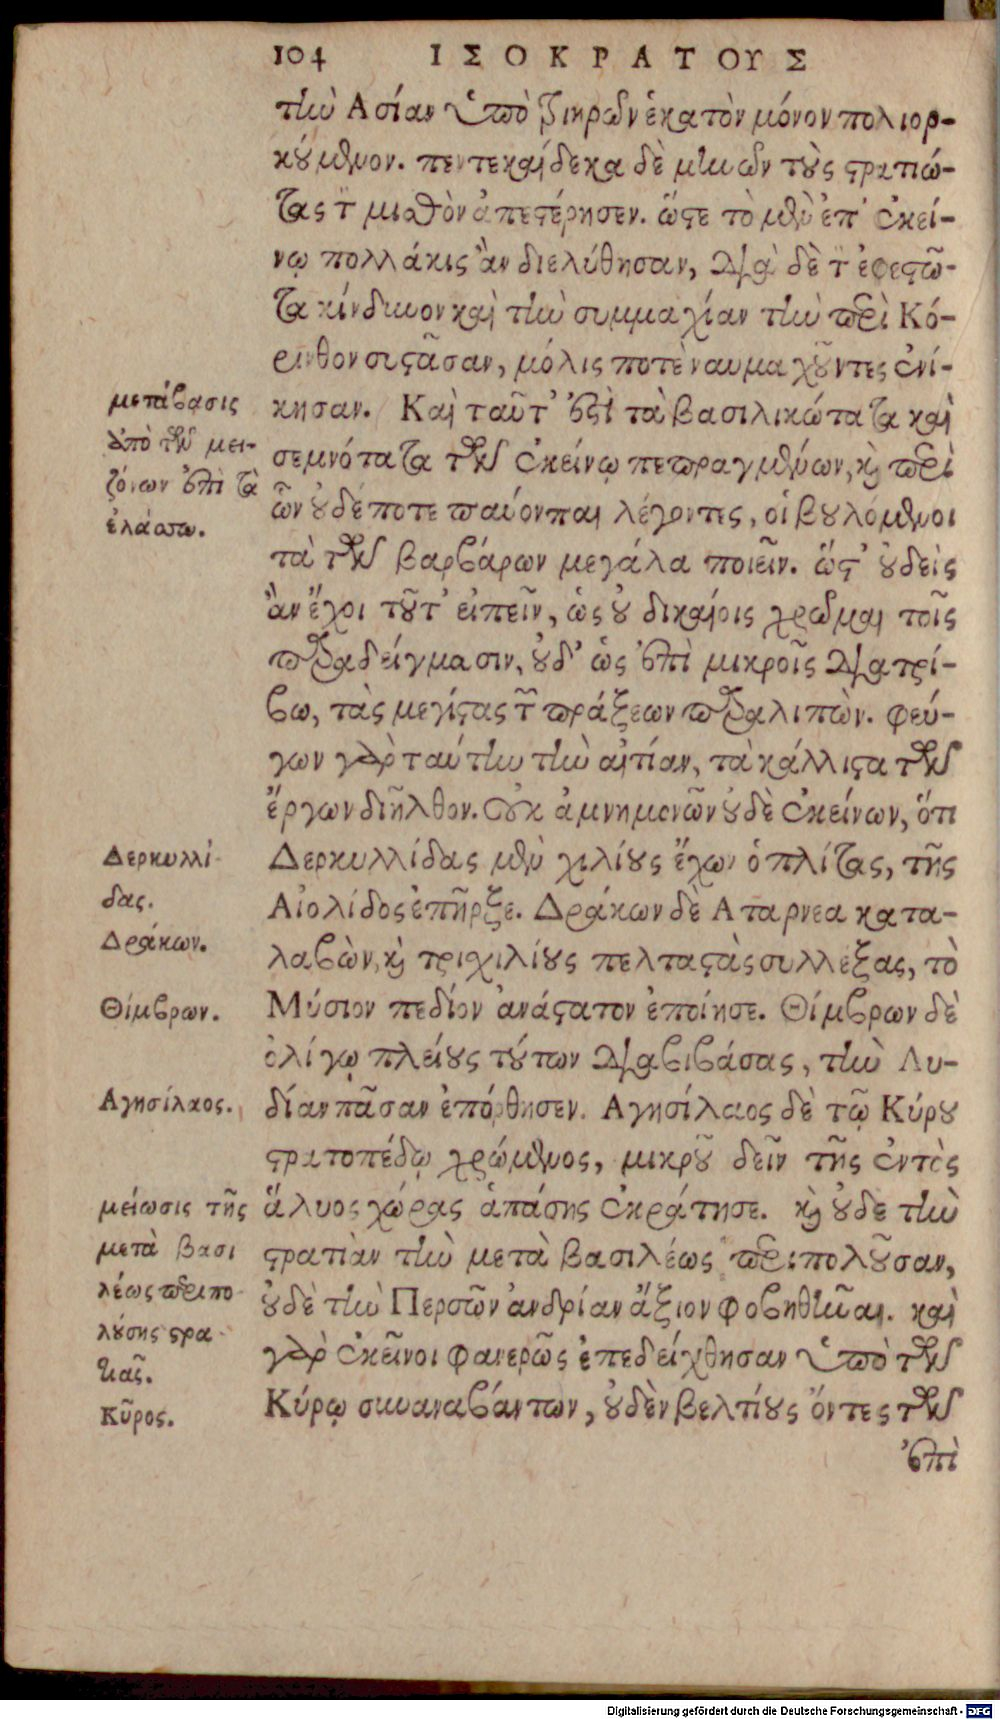 104 ΙΣΟΚΡΑΤΟΥΣ
τὴν Ασίαν ὑπὸ τριηρῶν ἑκατὸν μόνον πολιορ-
κούμενον. πεντεκαίδεκα δὲ μηνῶν τοὺς στρατιώ-
τας τὸν μισθὸν ἀπεστέρησεν. ὥστε τὸ μὲν ἐπ' ἐκεί-
νῳ πολλάκις ἂν διελύθησαν, διὰ δὲ τὸν ἐφεστῶ-
τα κίνδυνον καὶ τὴν συμμαχίαν τὴν περὶ Κό-
ρινθον συστᾶσαν, μόλις ποτὲ ναυμαχοῦντες ἐνί-
κησαν. Καὶ ταῦτ' ἐστὶ τὰ βασιλικώτατα καὶ
σεμνότατα τῶν ἐκείνῳ πεπραγμένων, καὶ περὶ
ὧν οὐδέποτε παύονται λέγοντες, οἱ βουλόμενοι
τὰ τῶν βαρβάρων μεγάλα ποιεῖν. ὥστ' οὐδεὶς
ἂν ἔχοι τοῦτ' εἰπεῖν, ὡς οὐ δικαίοις χρῶμαι τοῖς
παραδείγμασιν, οὐδ' ὡς ἐπὶ μικροῖς διατρί-
βω, τὰς μεγίστας τῶν πράξεων παραλιπών. φεύ-
γων γὰρ ταύτην τὴν αἰτίαν, τὰ κάλλιστα τῶν
ἔργων διῆλθον. Οὐκ ἀμνημονῶν οὐδὲ ἐκείνων, ὅτι
Δερκυλλίδας μὲν χιλίους ἔχων ὁπλίτας, τῆς
Αἰολίδος ἐπῆρξε. Δράκων δὲ Αταρνεα κατα-
λαβὼν, καὶ τρισχιλίους πελταστὰς συλλέξας, τὸ
Μύσιον πεδίον ἀνάστατον ἐποίησε. Θίμβρων δὲ
ὀλίγῳ πλείους τούτων διαβιβάσας, τὴν Λυ-
δίαν πᾶσαν ἐπόρθησεν. Αγησίλαος δὲ τῷ Κύρου
στρατοπέδῳ χρώμενος, μικροῦ δεῖν τῆς ἐντὸς
ἅλυος χώρας ἁπάσης ἐκράτησε. καὶ οὐδὲ τὴν
στρατιὰν τὴν μετὰ βασιλέως περιπολοῦσαν,
οὐδὲ τὴν Περσῶν ἀνδρίαν ἄξιον φοβηθῆναι. καὶ
γὰρ ἐκεῖνοι φανερῶς ἐπεδείχθησαν ὑπὸ τῶν
Κύρῳ συναναβάντων, οὐδὲν βελτίους ὄντες τῶν
ἐπὶ
μετάβασις
ἀπὸ τῶν μει-
ζόνων ἐπὶ τὰ
ἐλάττω.
Δερκυλλί-
δας.
Δράκων.
Θίμβρων.
Αγησίλαος.
μείωσις τῆς
μετὰ βασι
λέως περιπο-
λούσης στρα-
τιᾶς.
Κῦρος.
Digitalisierung gefördert durch die Deutsche Forschungsgemeinschaft - DFG